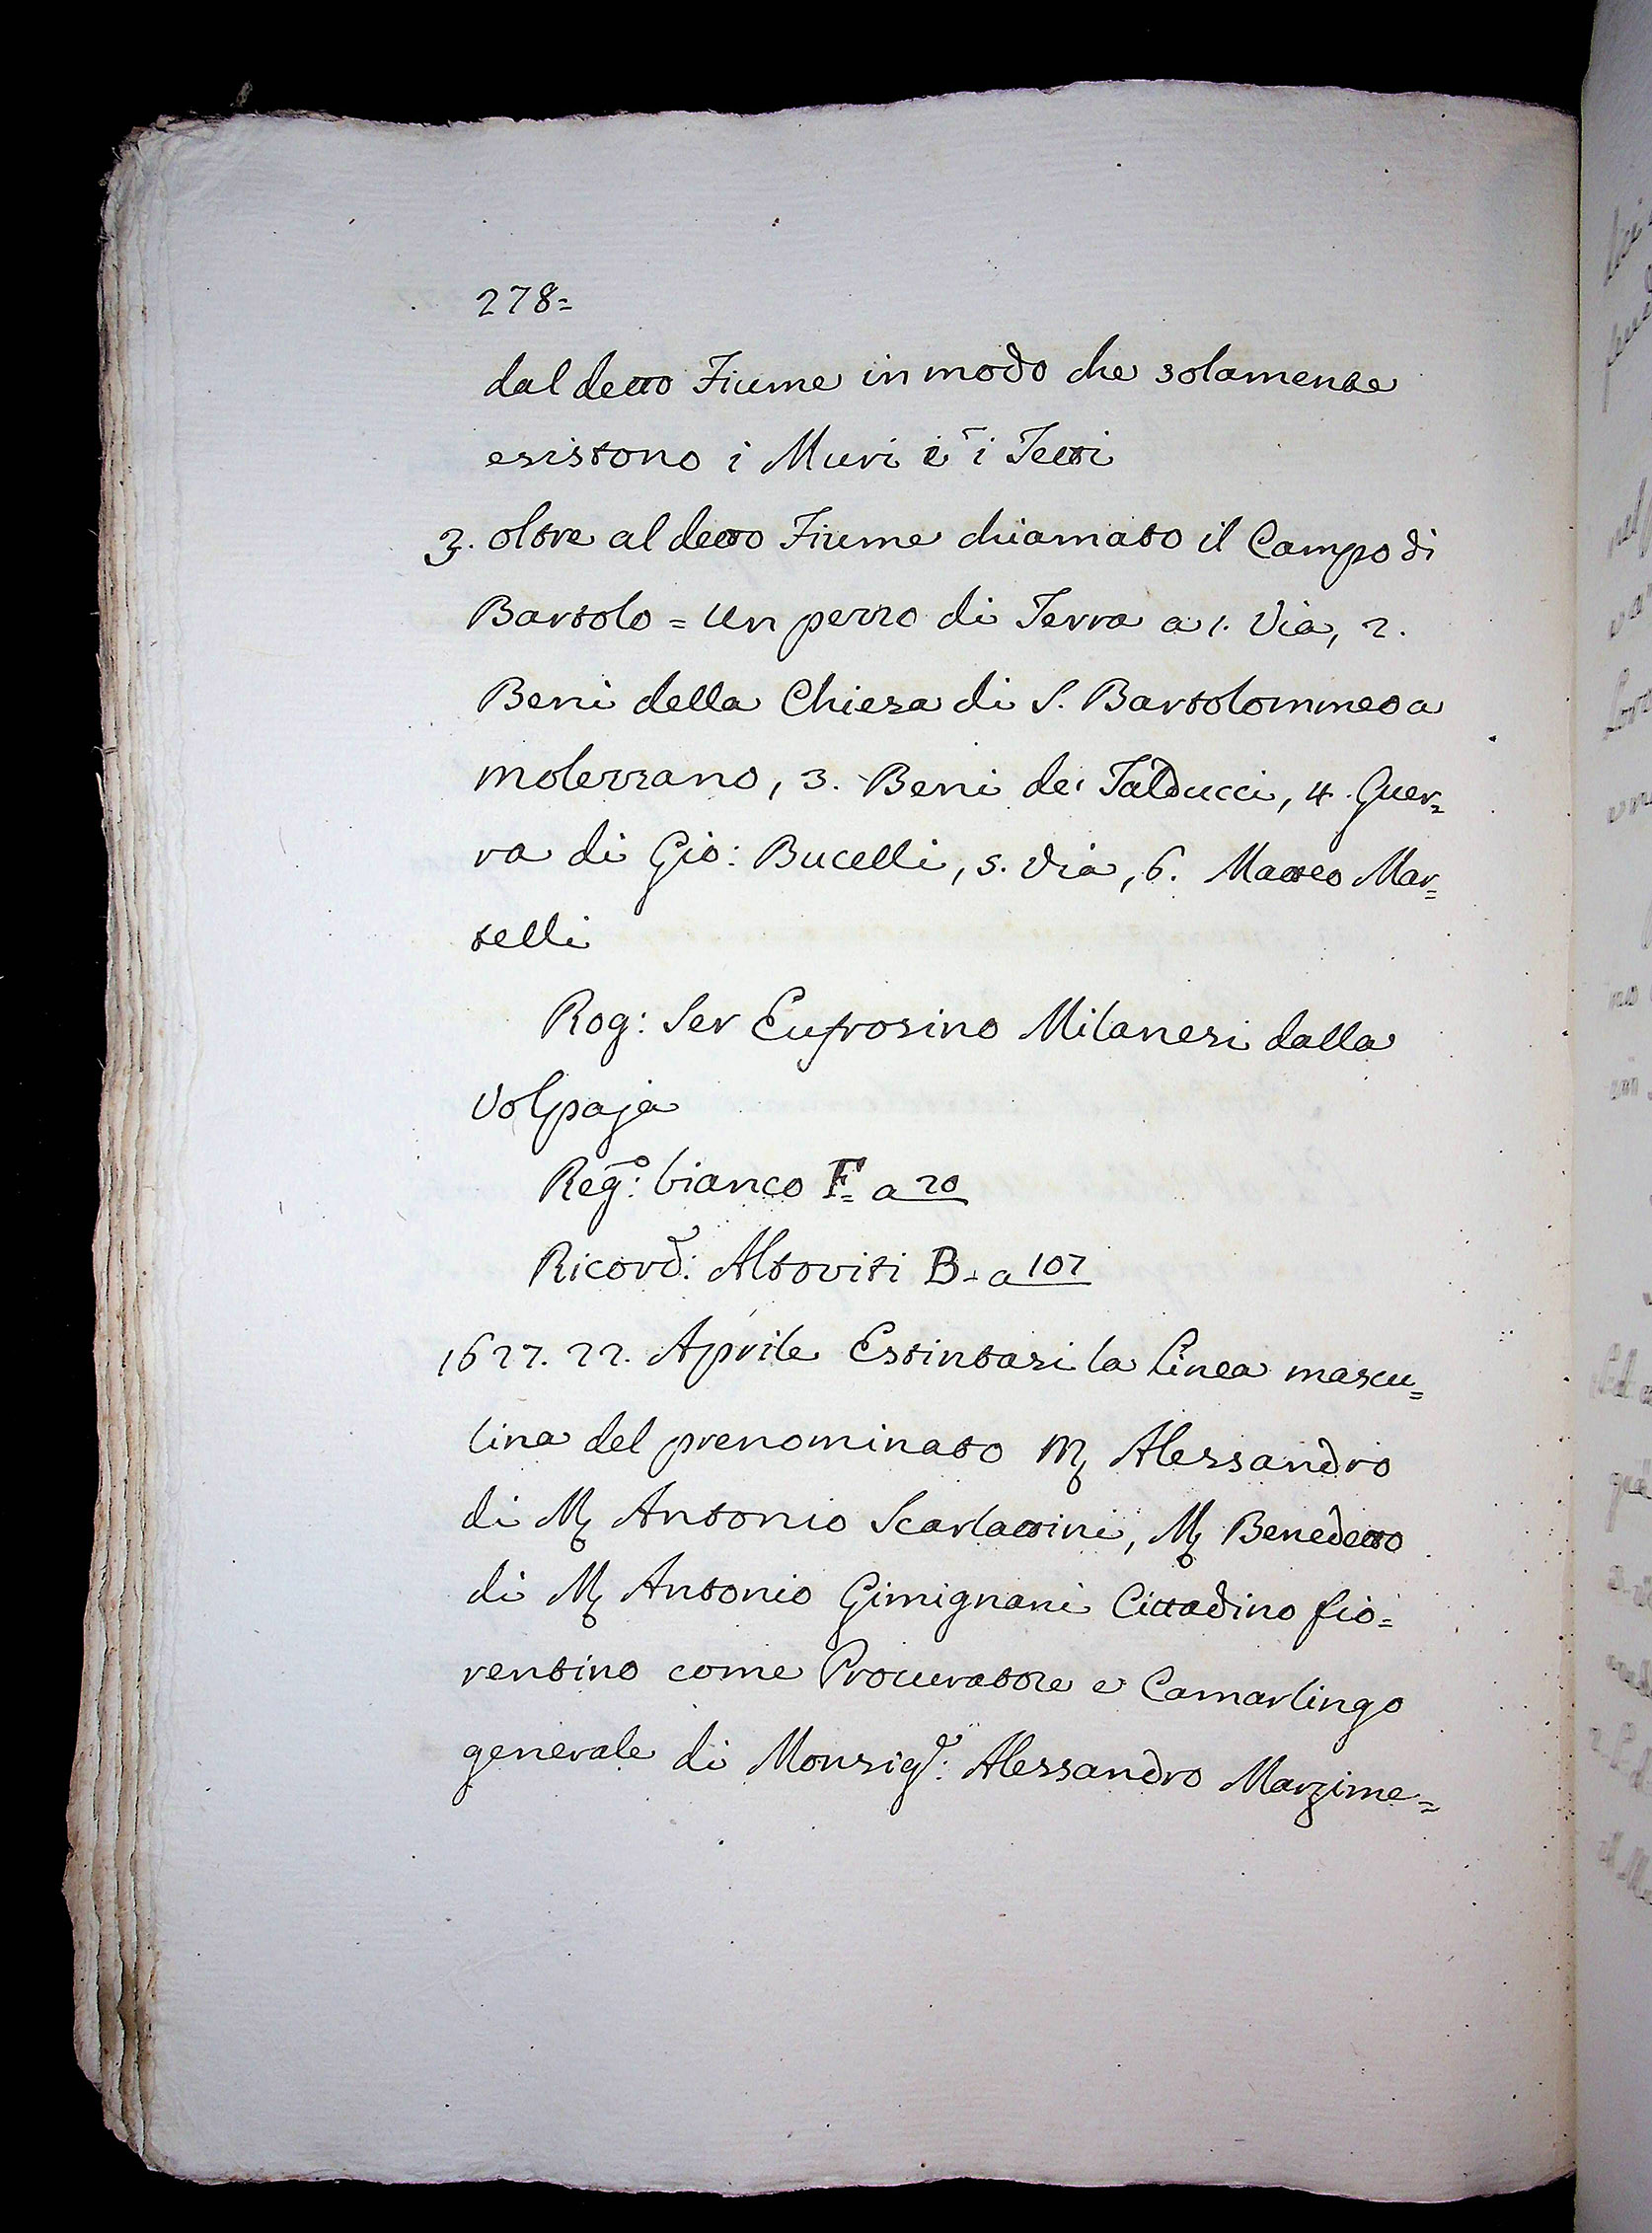 278=
dal detto Fiume in modo che solamente
esistono i Muri e i Tetti
3. oltre al detto Fiume chiamato il Campo di
Bartolo = Un pezzo di Terra a 1. Via, 2.
Beni della Chiesa di S. Bartolommeo a
Molezzano, 3. Beni dei Talducci, 4. Guer=
ra di Gio: Bucelli, 5. Via, 6. Matteo Mar=
telli
Rog: Ser Eufrosino Milanesi dalla
Volpaja
Reg.o: bianco F= a 20
Ricord: Altoviti B- a 107
1627. 22. Aprile Estintasi la linea mascu=
lina del prenominato M. Alessandro
di M. Antonio Scarlattini, M. Benedetto
di M. Antonio Gimignani Cittadino fio=
rentino come Procuratore e Camarlingo
generale di Monsig.r: Alessandro Marzime=